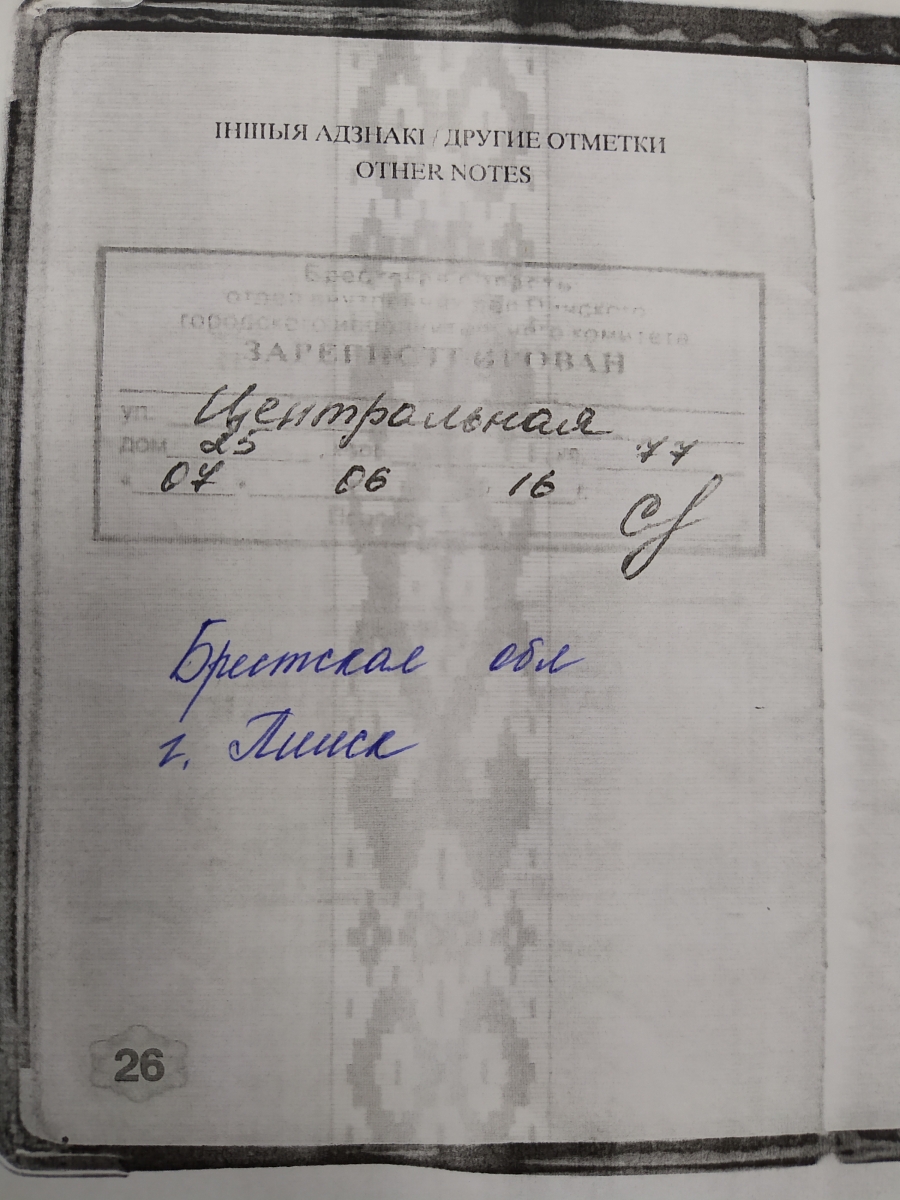 ІНШЫЯ АДЗНАКІ / ДРУГИЕ ОТМЕТКИ
OTHER NOTES
Брестская область
отдел внутренних дел Пинского
городского исполнительного комитета
ЗАРЕГИСТРИРОВАН
ул. Центральная
дом 25 77
" 07 " 06 16 г.
Брестская обл
г. Пинск
26